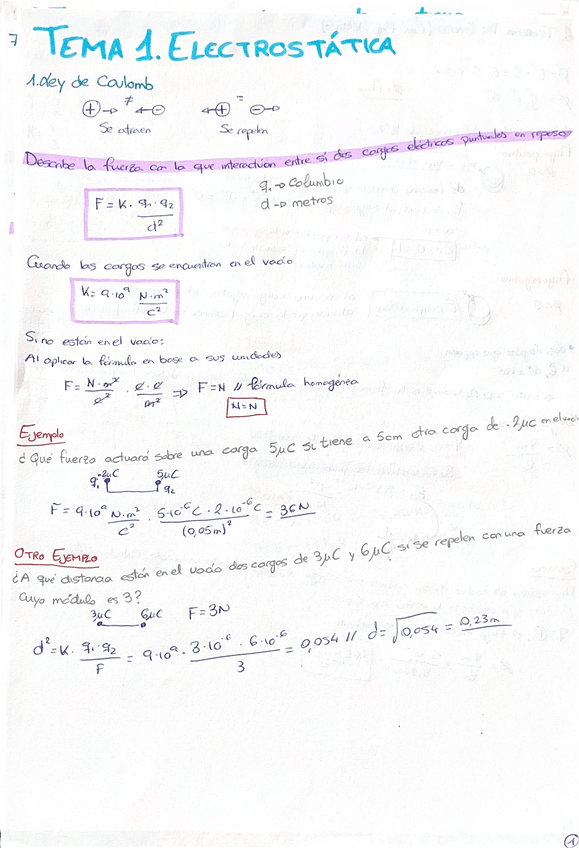 7
TEMA 1. ELECTROSTÁTICA
1. Ley de Coulomb
+ → ≠ ← - ← + = - →
Se atraen Se repelen
Describe la fuerza con la que interactúan entre sí dos cargas eléctricas puntuales en reposo
F = K · q₁ · q₂ / d²
q₁ → Columbio
d → metros
Cuando las cargas se encuentran en el vacío
K = 9·10⁹ N·m² / C²
Si no están en el vacío:
Al aplicar la fórmula en base a sus unidades
F = N·m² / C² · C·C / m² ⇒ F = N // fórmula homogénea
N = N
Ejemplo
¿Qué fuerza actuará sobre una carga 5μC si tiene a 5cm otra carga de -2μC en el vacío
-2μC 5μC
q₁ q₂
F = 9·10⁹ N·m² / C² · 5·10⁻⁶C · 2·10⁻⁶C / (0,05m)² = 36N
OTRO EJEMPLO
¿A qué distancia están en el vacío dos cargas de 3μC y 6μC si se repelen con una fuerza
cuyo módulo es 3?
3μC 6μC F = 3N
d² = K · q₁·q₂ / F = 9·10⁹ · 3·10⁻⁶ · 6·10⁻⁶ / 3 = 0,054 // d = √0,054 = 0,23m
1